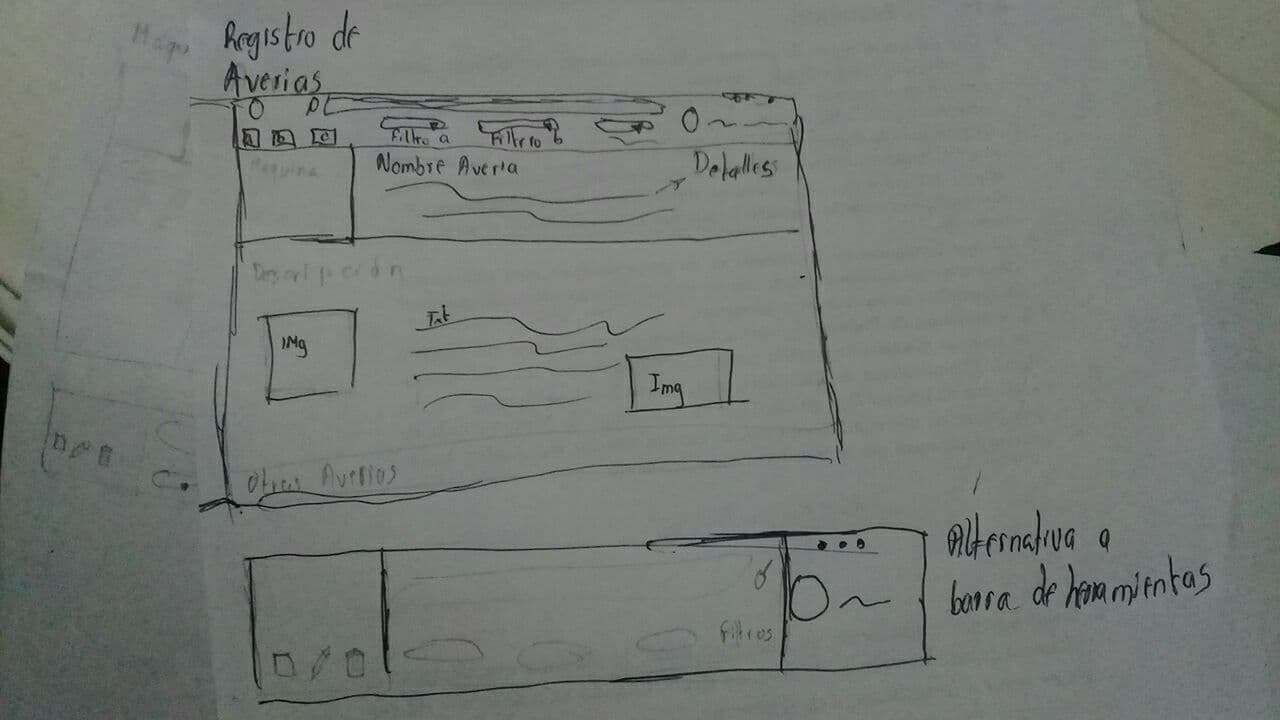 Registro de
Averias
Filtro a
Filtrro b
Maquina
Nombre Averia
Detalles
Descripción
IMg
Txt
Img
Otras Averias
Alternativa a
barra de herramientas
filtros